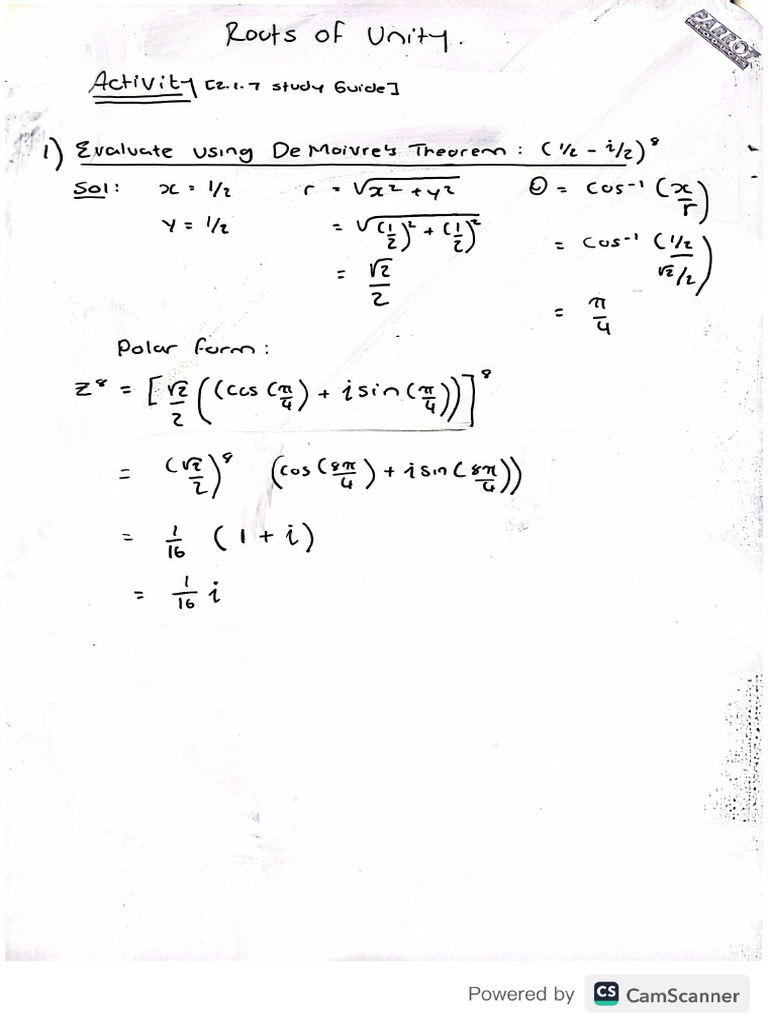 Roots of Unity.
PARROT
Activity [2.1.7 Study Guide]
1) Evaluate using De Moivre's Theorem : (1/2 - i/2)^8
Sol: x = 1/2 r = √x² + y² Θ = cos⁻¹ (x/r)
y = 1/2 = √(1/2)² + (1/2)² = cos⁻¹ (1/2 / √2/2)
= √2/2 = π/4
Polar form :
Z^8 = [√2/2 ((cos(π/4) + i sin(π/4))]^8
= (√2/2)^8 (cos(8π/4) + i sin(8π/4))
= 1/16 (1 + i)
= 1/16 i
Powered by CS CamScanner